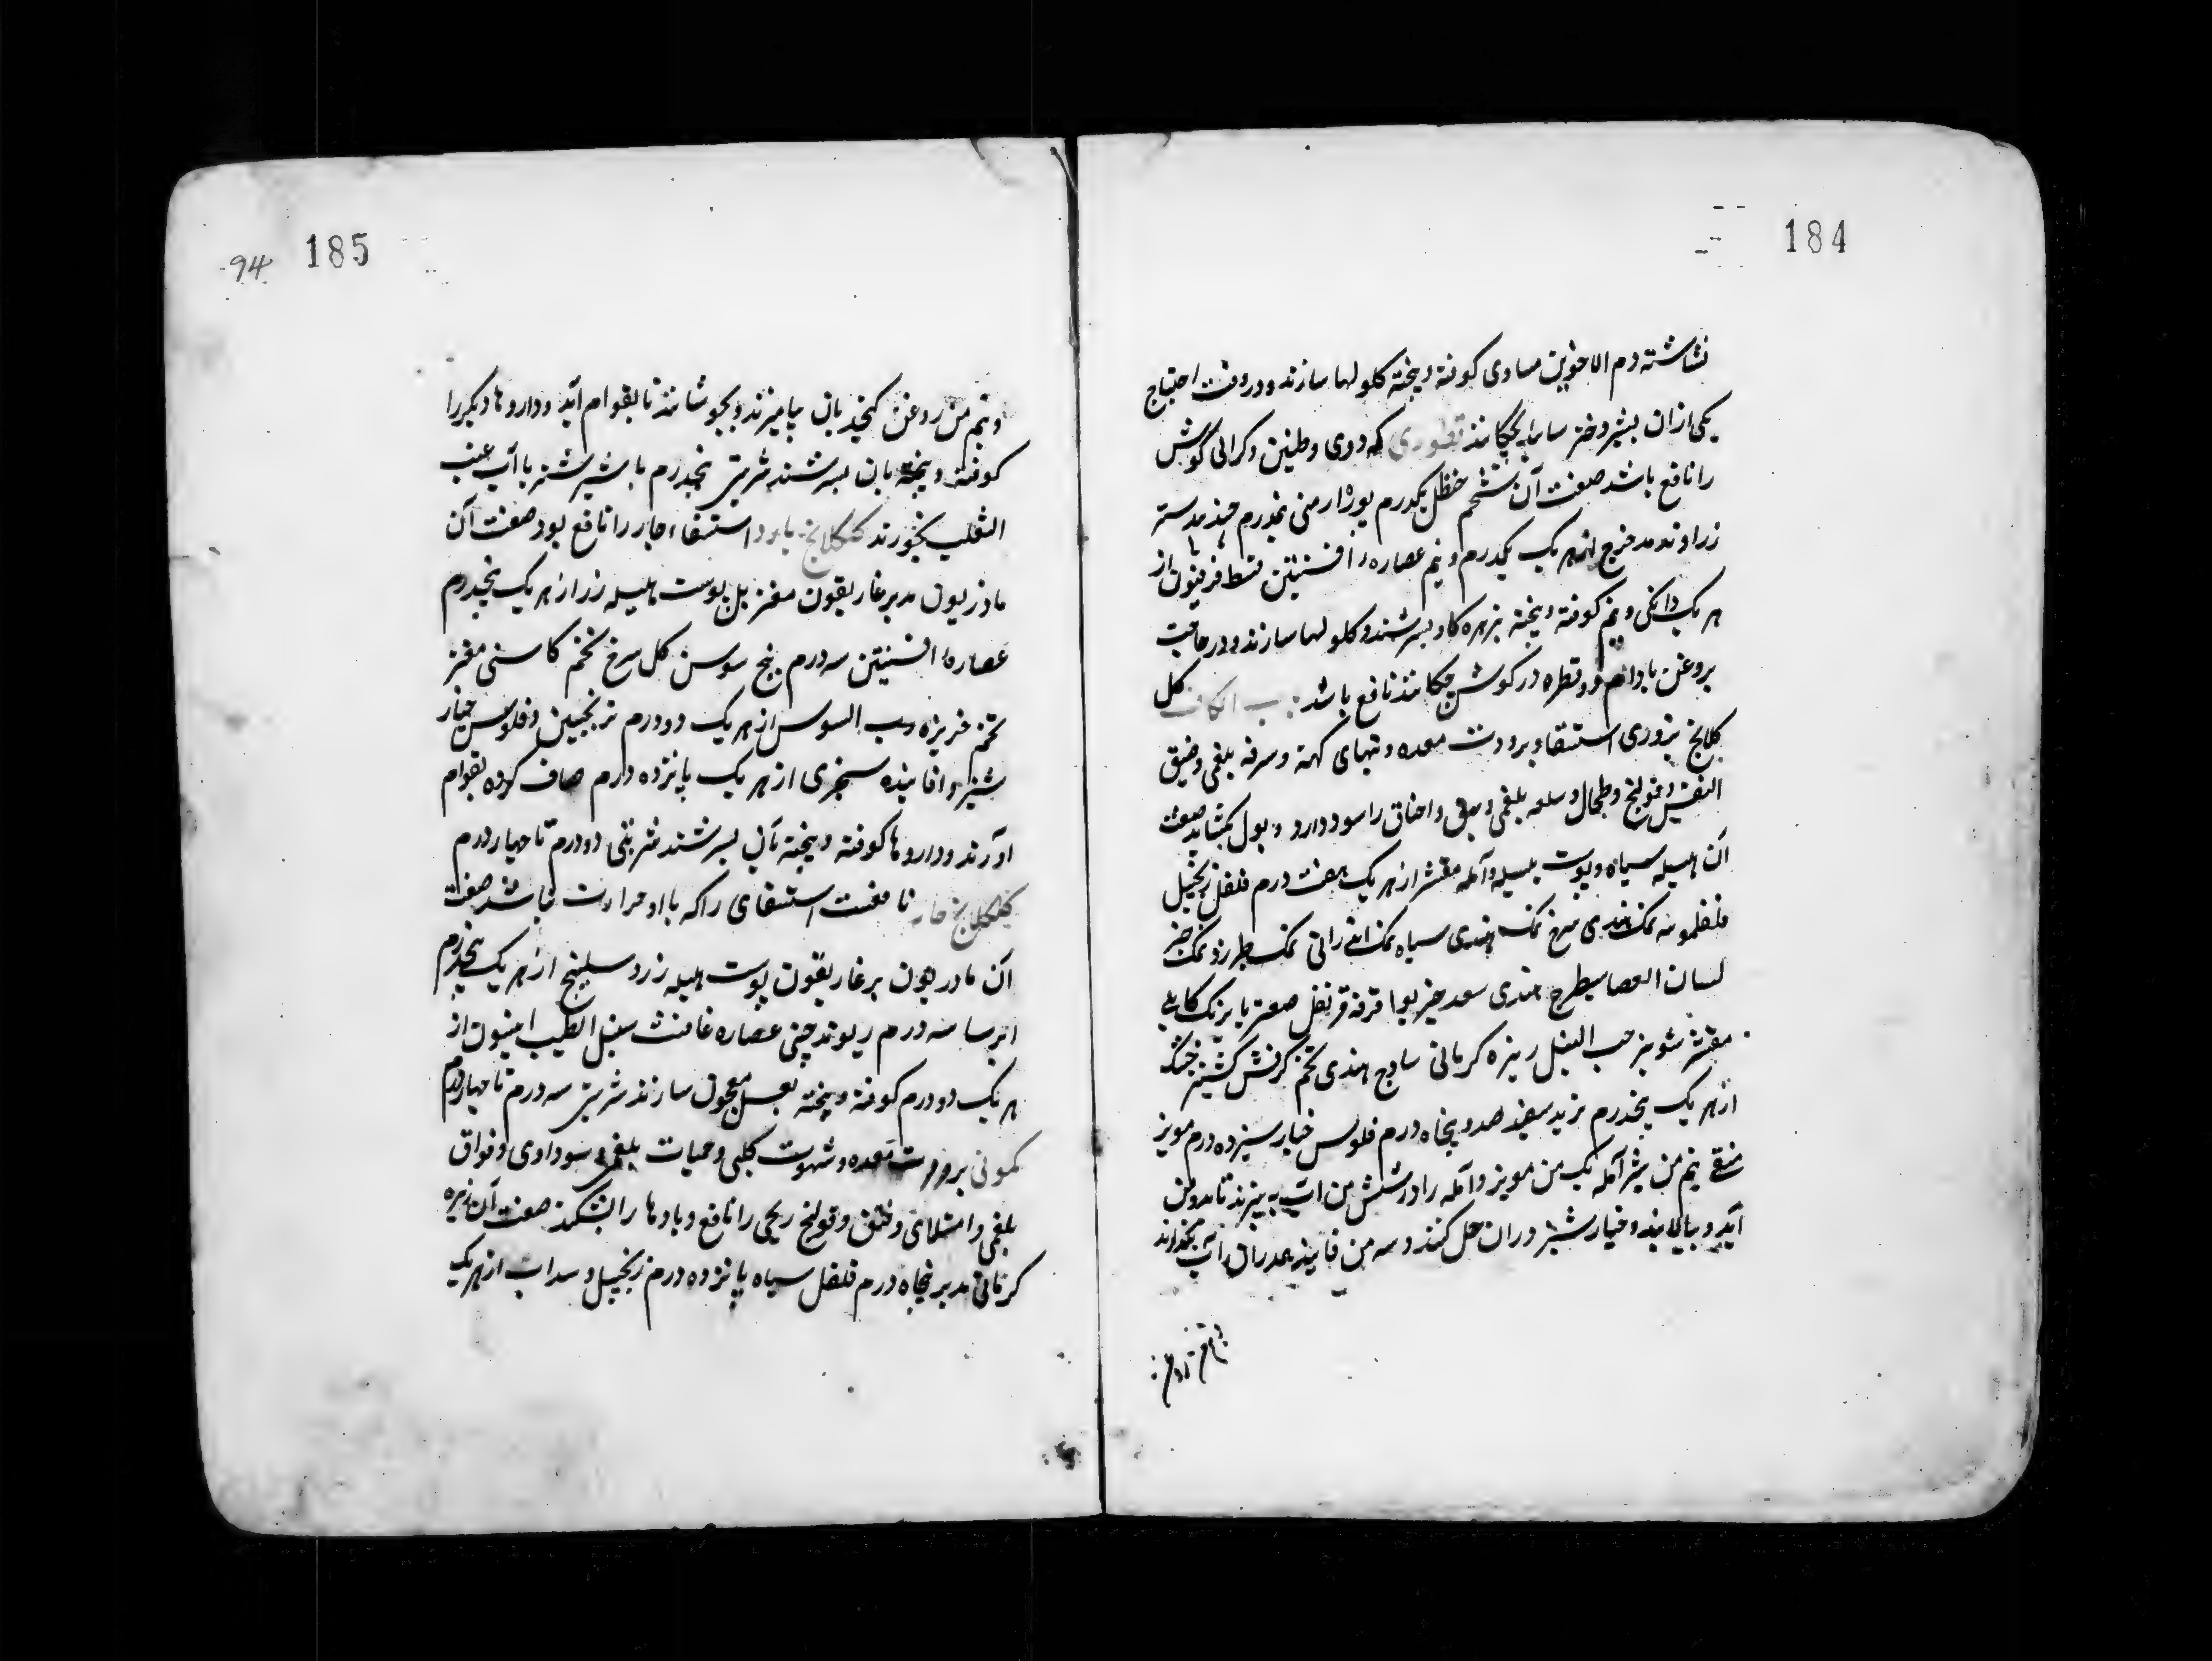 184
نشاسته دم الاخوین مساوی کوفته و بیخته کلولها سازند و در وقت احتیاج
یکی ازان بشیر دختر سایه بچکانند قطوری که دوی و طنین و کرانی کوش
را نافع باشد صفت آن شحم حنظل یکدرم بوره ارمنی نیمدرم جند بیدستر
زراوند مدحرج از هر یک یکدرم و نیم عصاره افسنتین قسط فرفیون از
هر یک دانکی و نیم کوفته و بیخته بزهره کاو بسرشند و کلولها سازند و در حاجت
بروغن بادام دو قطره در کوش چکانند نافع باشد باب الکاف کل
کلانج بزوری استسقا و برودت معده و تبهای کهنه و سرفه بلغمی و ضیق
النفس و قولنج و طحال و سلعه بلغمی و بهق و اختاق را سود دارد و بول بکشاید صفت
آن هلیله سیاه و پوست بلیله و آمله مقشر از هر یک هفت درم فلفل زنجبیل
فلفلمویه نمک هندی سرخ نمک هندی سیاه نمک اندرانی نمک طبرزد نمک خبز
لسان العصا شیطرج هندی سعد خیربوا قرفه قرنفل صعتر بابرنک کابلی
مقشر شونیز حب النیل زیره کرمانی ساذج هندی تخم کرفس کشنیز خشک
از هر یک پنجدرم تربد سفید صد و پنجاه درم فلوس خیار سیزده درم مویز
منقی نیم من شیر آمله یک من مویز و آمله را در شش من آب بپزند تا بدو من
آید و بپالایند و خیار شنبر دران حل کنند و سه من فانیذ بدران آب بکدازند
185
94
و نیم من روغن کنجد بان بیامیزند و بجوشانند تا بقوام آید و داروها دیکر را
کوفته و بیخته بان بسرشند شربتی پنجدرم با شیر شتر با آب عنب
الثعلب بخورند کلکلانج بارد استسقاء حار را نافع بود صفت آن
ماذریون مدبر غاریقون مغز بل پوست هلیله زرد از هر یک پنجدرم
عصاره افسنتین سه درم بیخ سوسن کل سرخ تخم کاسنی مغز
تخم خربزه رب السوس از هر یک دو درم ترنجبین و فلوس خیار
شنبر و فانیذ سنجری از هر یک پانزده درم صاف کرده بقوام
آورند و داروها کوفته و بیخته بآن بسرشند شربتی دو درم تا چهار درم
کلکلانج حار نافعست استسقای را که با او حرارت نباشد صفت
آن ماذریون بر غاریقون پوست هلیله زرد سلیخه از هر یک پنجدرم
ایرسا سه درم ریوند چینی عصاره غافث سنبل الطیب انیسون از
هر یک دو درم کوفته و بیخته بعسل معجون سازند شربتی سه درم تا چهار درم
کمونی برودت معده و شهوت کلبی و حمیات بلغمی و سوداوی و فواق
بلغمی و امتلای و فتق و قولنج ریحی را نافع و بادها را بشکند صفت آن زیره
کرمانی مدبر پنجاه درم فلفل سیاه پانزده درم زنجبیل و سداب از هر یک